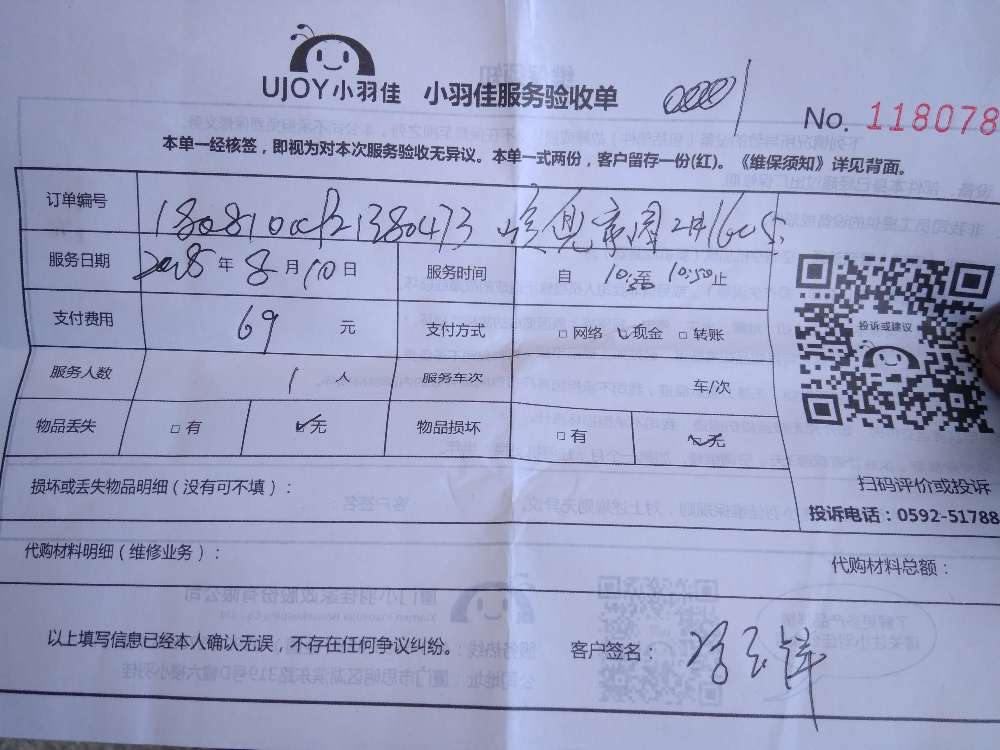 UJOY小羽佳 小羽佳服务验收单
No. 118078
本单一经核签，即视为对本次服务验收无异议。本单一式两份，客户留存一份(红)。《维保须知》详见背面。
订单编号
服务日期 2018 年 8 月 10 日 服务时间 自 10:30 至 10:50 止
支付费用 69 元 支付方式 □ 网络 ✓ 现金 □ 转账
投诉或建议
服务人数 1 人 服务车次 车/次
物品丢失 □ 有 ✓ 无 物品损坏 □ 有 ✓ 无
损坏或丢失物品明细（没有可不填）：
扫码评价或投诉
投诉电话：0592-51788
代购材料明细（维修业务）：
代购材料总额：
以上填写信息已经本人确认无误，不存在任何争议纠纷。 客户签名：